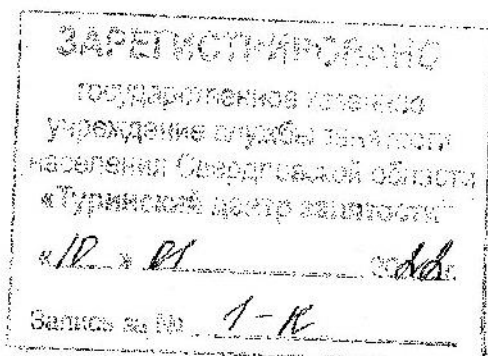 ЗАРЕГИСТРИРОВАНО
государственное казенное
учреждение службы занятости
населения Свердловской области
«Туринский центр занятости»
«10» 01 2022г.
Запись за № 1-К